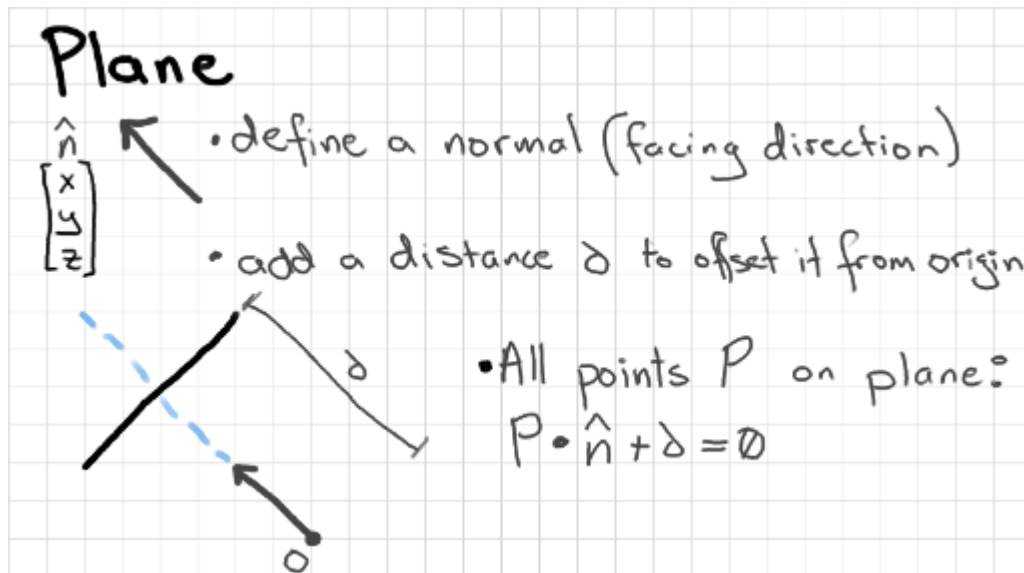 Plane
n̂
• define a normal (facing direction)
[x
y
z]
• add a distance d to offset it from origin
d
• All points P on plane:
P • n̂ + d = 0
O